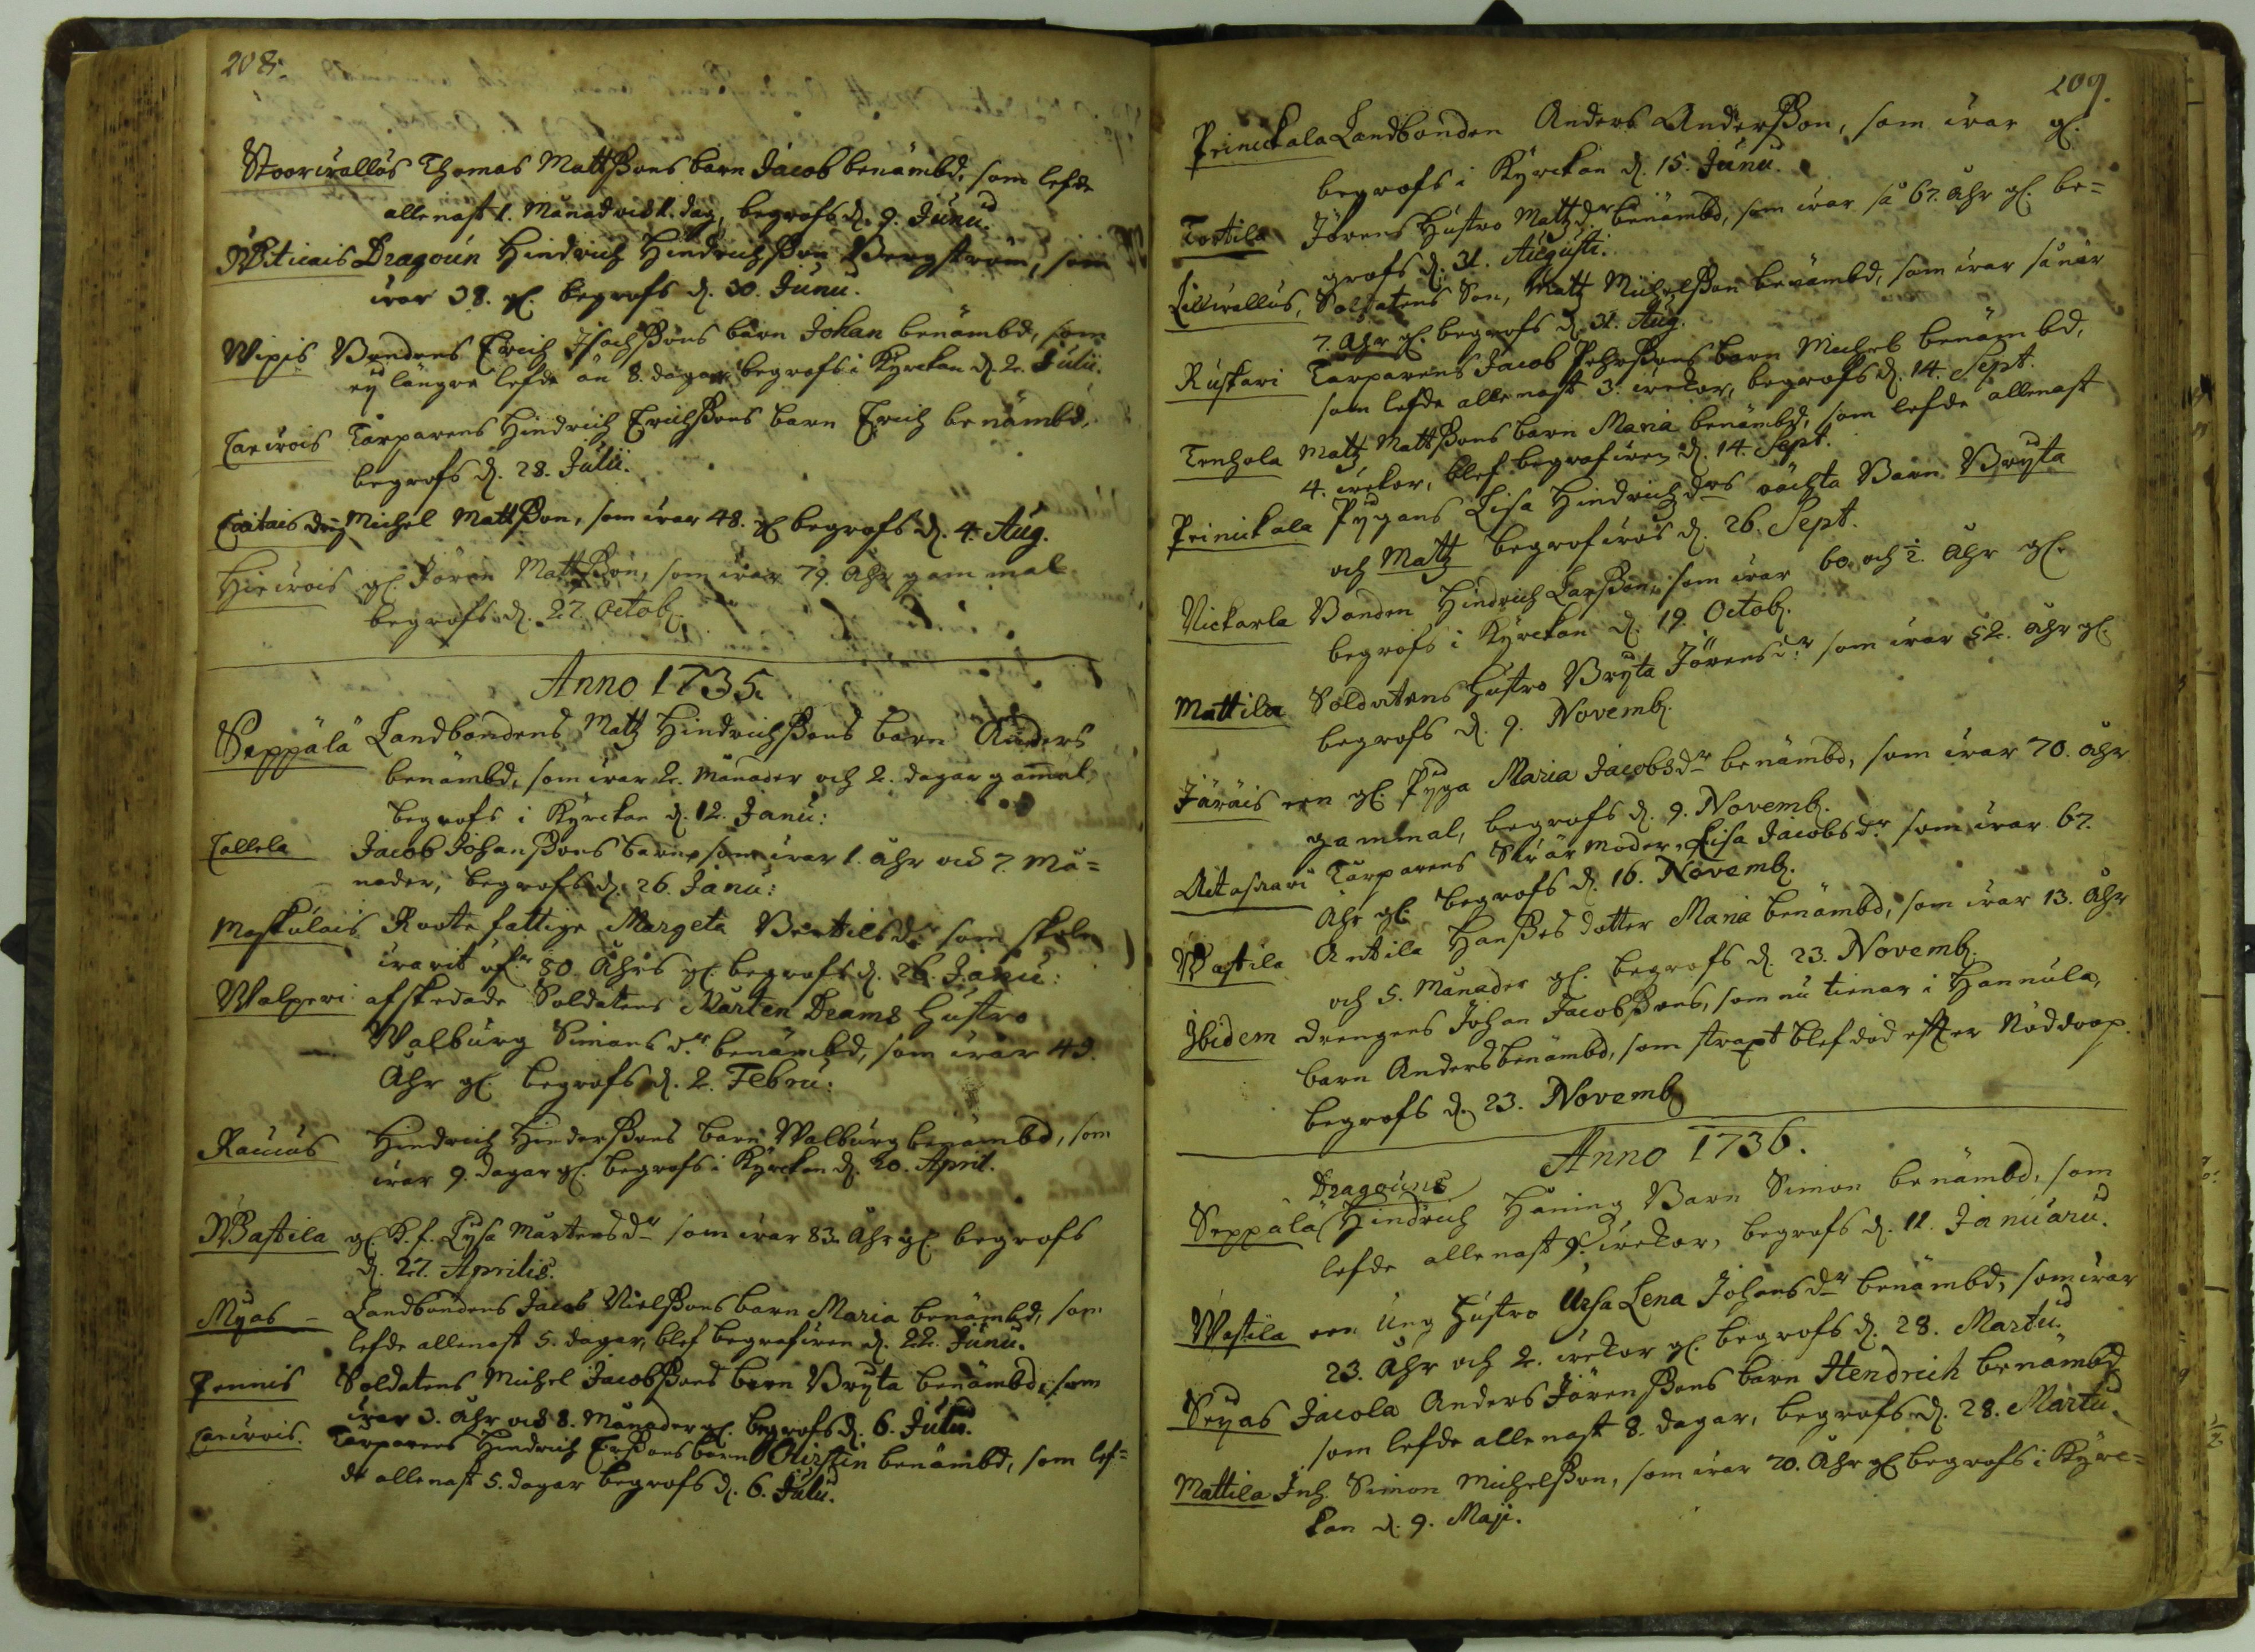 208.
Stoorwallus Thomas Mattßons barn Jacob benämbd, som lefde
allenast 1. Månad och 1. dag, begrofs d. 9. Junii.
Witicais Dragoun Hindrich Hindrichßon Bergström, som
war 38. gl. begrofs d. 30. Junii.
Wipis Bondens Erich Isachßons barn Johan benämbd, som
eij längre lefde än 8. dagar begrofs i Kyrckan d. 2. Julii.
Carwois Torparens Hindrich Erichßons barn Erich benämbd,
begrofs d. 28. Julii.
dreng Michel Mattßon, som war 48. gl begrofs d. 4. Aug.
Hirwois gl. Jören Mattßon, som war 79. Åhr gammal
begrofs d. 27. Octob.
Anno 1735.
Seppälä Landbondens Matz Hindrichßons barn Anders
benämbd, som war 2. månader och 2. dagar gammal,
begrofs i Kyrckan d. 12. Janu:
Tallela Jacob Johanßons barn, som war 1. åhr och 7. må=
nader, begrofs d. 26. Janu:
Maskulais Roote fattige Margeta Bertilsdr som skole
warit öfr 80 Åhrs gl. begrofs d. 26. Janu:
Walperi afskedade Soldatens Mårten Deams Hustro
Walburg Simons dr benämbd, som war 49.
Åhr gl. begrofs d. 2. Febru:
Raucus Hindrich Hinderßons barn Walburg benämbd, som
war 9. dagar gl. begrofs i Kyrckan d. 20. April.
Wastila gl. K. f. Lysa Mårtensdr som war 83. Åhr gl. begrofs
d. 27. Aprilis.
Myas – Landbondens Jacob Nielßons barn Maria benämbd, som
lefde allenast 5. dagar, blef begrafwen d. 22. Junii.
Pennis Soldatens Michel Jacobßons barn Bryta benämbd, som
war 3. åhr och 8. Månader gl. begrofs d. 6. Julii.
Carwois. Torparens Hindrich Erßons barn Christin benämbd, som lef=
de allenast 5. dagar begrofs d. 6. Julii.
209.
Prinickala Landbonden Anders Anderßon, som war gl.
begrofs i Kyrckan d. 15. Junii.
Tortila Jörens Hustro Matzdr benämbd, som war så 67. Åhr gl. be=
grofs d. 31. Augusti.
Lillwallus, Soldatens Son, Matz Michelßon benämbd, som war så när
7. Åhr gl. begrofs d. 31. Aug.
Ruskari Torparens Jacob Pehrßons barn Michel benämbd,
som lefde allenast 3. weckor, begrofs d. 14. Sept.
Trnhola Matz Mattßons barn Maria benämbd, som lefde allenast
4. weckor, blef begrafwen d. 14. Sept.
Prinickala Pygans Lisa Hindrichdrs oächta Barn Bryta
och Matz begrafwos d. 26. Sept.
Nickarla Bonden Hindrich Larßon, som war 60. och ½. Åhr gl.
begrofs i Kyrckan d. 19. Octob.
Mattila Soldatens Hustro Bryta Jörensdr som war 52. åhr gl.
begrofs d. 9. Novemb.
Järäis een gl. Pyga Maria Jacobsdr benämbd, som war 70. åhr
gammal, begrofs d. 9. Novemb.
Torparens Swär moder, Lisa Jacobsdr som war 67.
Åhr gl. begrofs d. 16. Novemb.
Wastila Antila Hanßes dotter Maria benämbd, som war 13. Åhr
och 5. Månader gl. begrofs d. 23. Novemb.
Ibidem drengens Johan Jacobßons, som nu tienar i Hannula,
barn Anders benämbd, som straxt blef död efter Nöddoop.
begrofs d. 23. Novemb
Anno 1736.
Dragouns
Seppälä Hindrich Häning Barn Simon benämbd, som
lefde allenast 9. weckor, begrofs d. 11. Januarii.
Wastila een Ung Hustro Ursa Lena Johansdr benämbd, som war
23. Åhr och 2. weckor gl. begrofs d. 28. Martii.
Seyas Jacola Anders Jörenßons barn Hendrich benämbd
som lefde allenast 8. dagar, begrofs d. 28. Martii.
Mattila Inh. Simon Michelßon, som war 70. Åhr gl. begrofs i Kyrc=
kan d. 9. Maji.